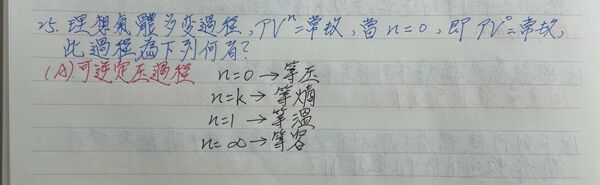 25. 理想氣體多變過程, PVⁿ=常數, 當n=0, 即PV⁰=常數,
此過程為下列何者?
(A)可逆定压過程 n=0→等压
n=k→等熵
n=1→等溫
n=∞→等容